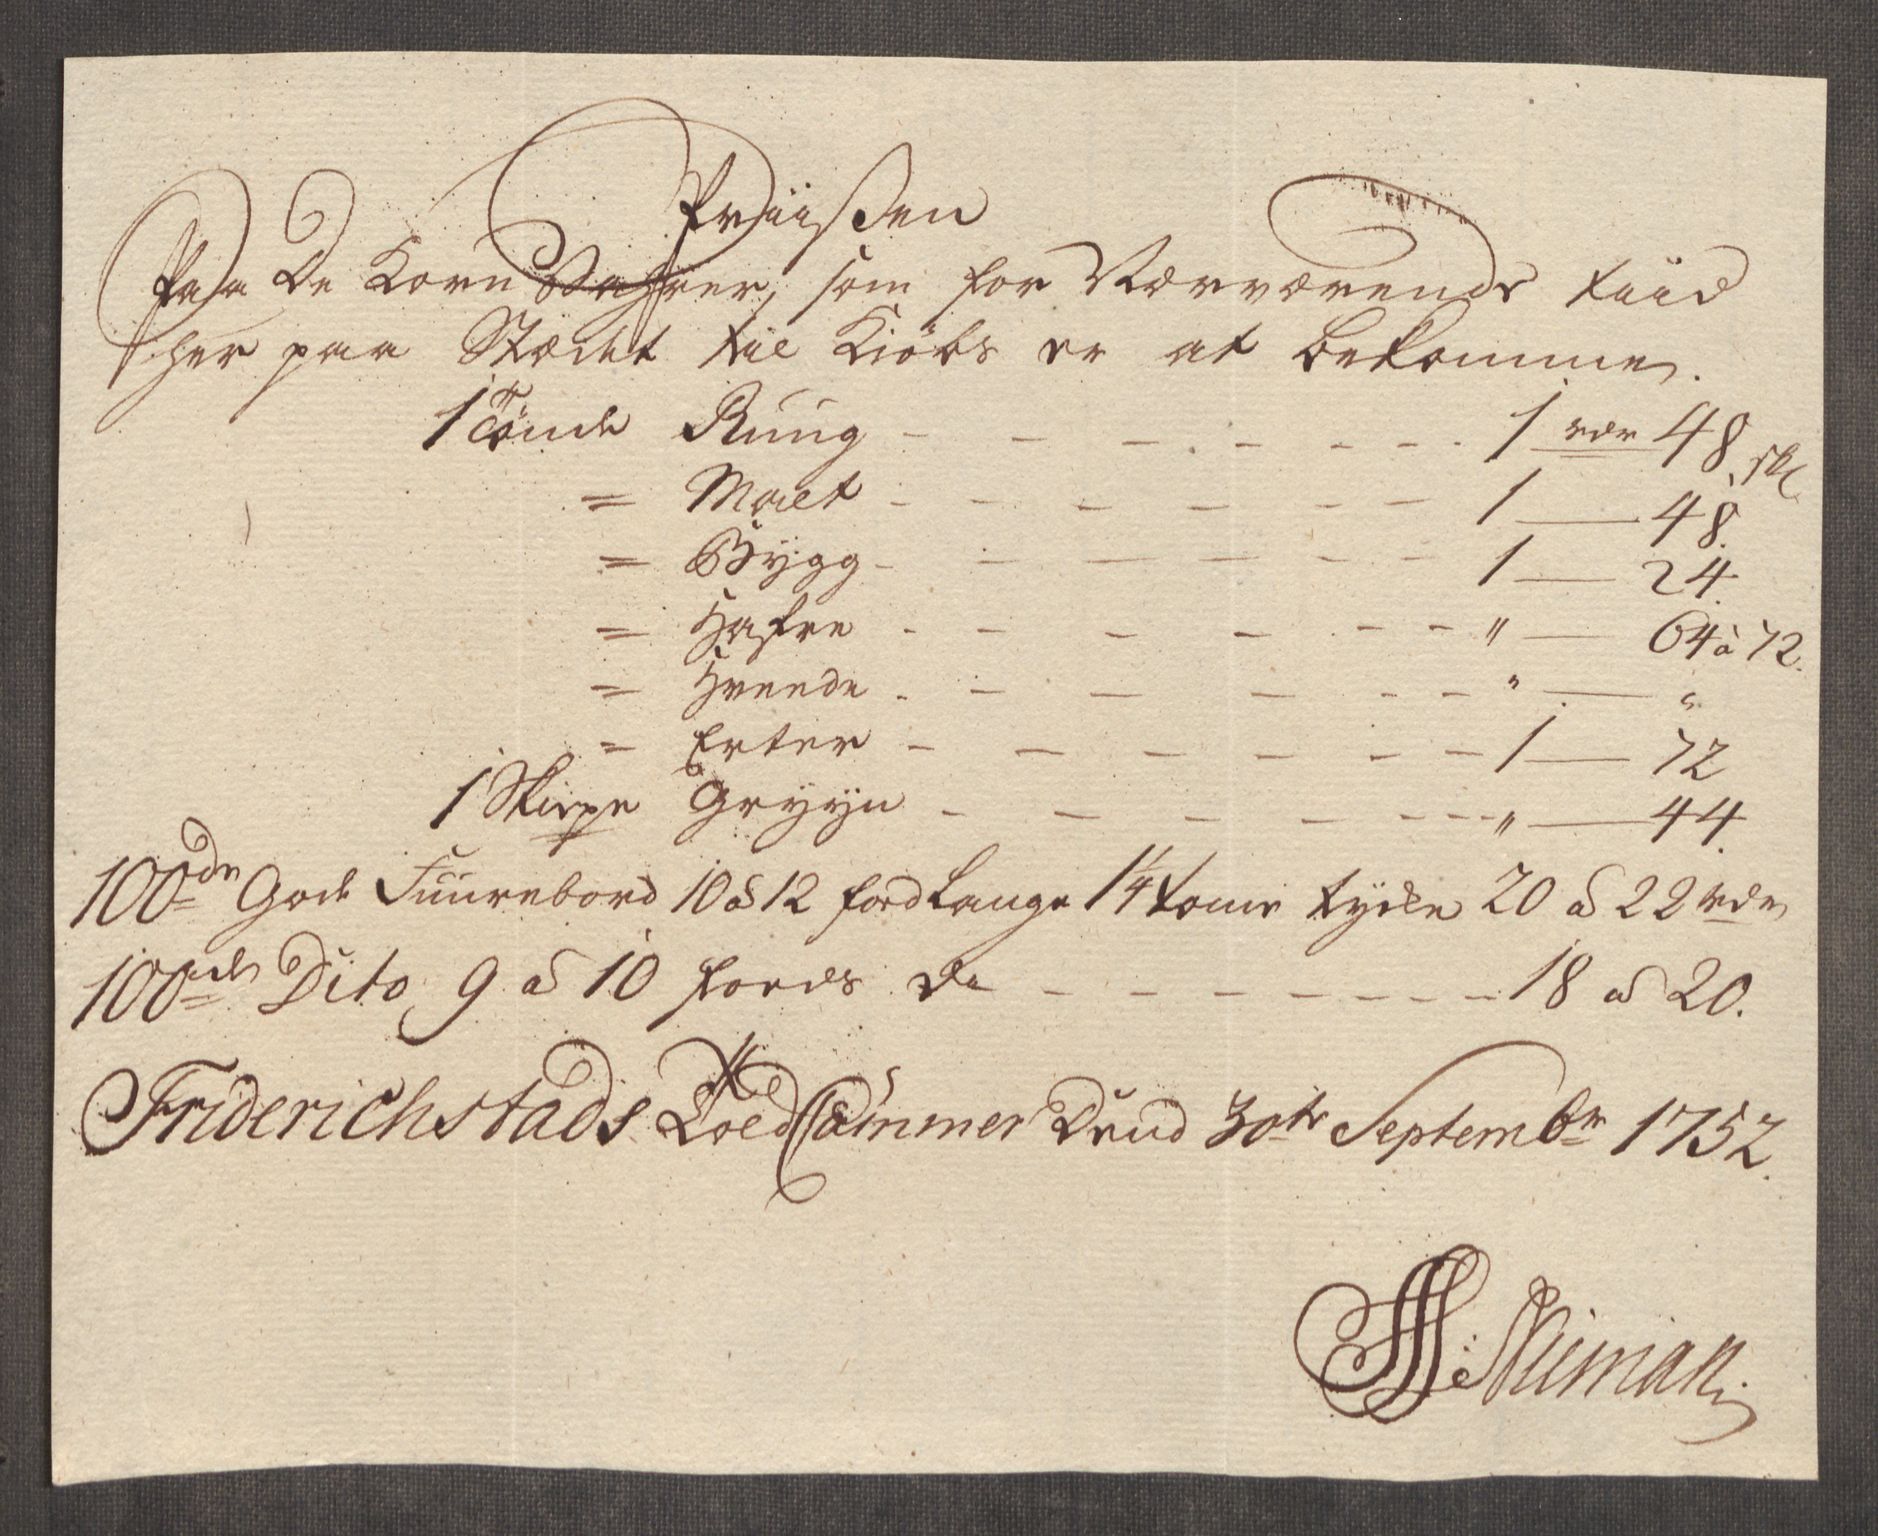 Priissen
Paa De Korn Vahrer, som for Nærværende tiid
her paa Stædet til Kiöbs er at bekomme.
1 Tönde Rüug - - - - - - - 1 rdr 48 skl
= Malt - - - - - - 1 — 48.
= Bygg - - - - - - 1 — 24.
= Hafre - - - - - - - " — 64 à 72.
= Hveede - - - - - - " — "
= Erter - - - - - - 1 — 72
1 Skiepe Gryyn - - - - - - - " — 44.
100de Gode Fuurebord 10 à 12 foed Lange 1 1/4 tome tycke 20 à 22 rdr
100de Dito 9 à 10 foeds de - - - - - - - - 18 à 20.
Friderichstads Toldkammer Dend 30te Septembr 1752.